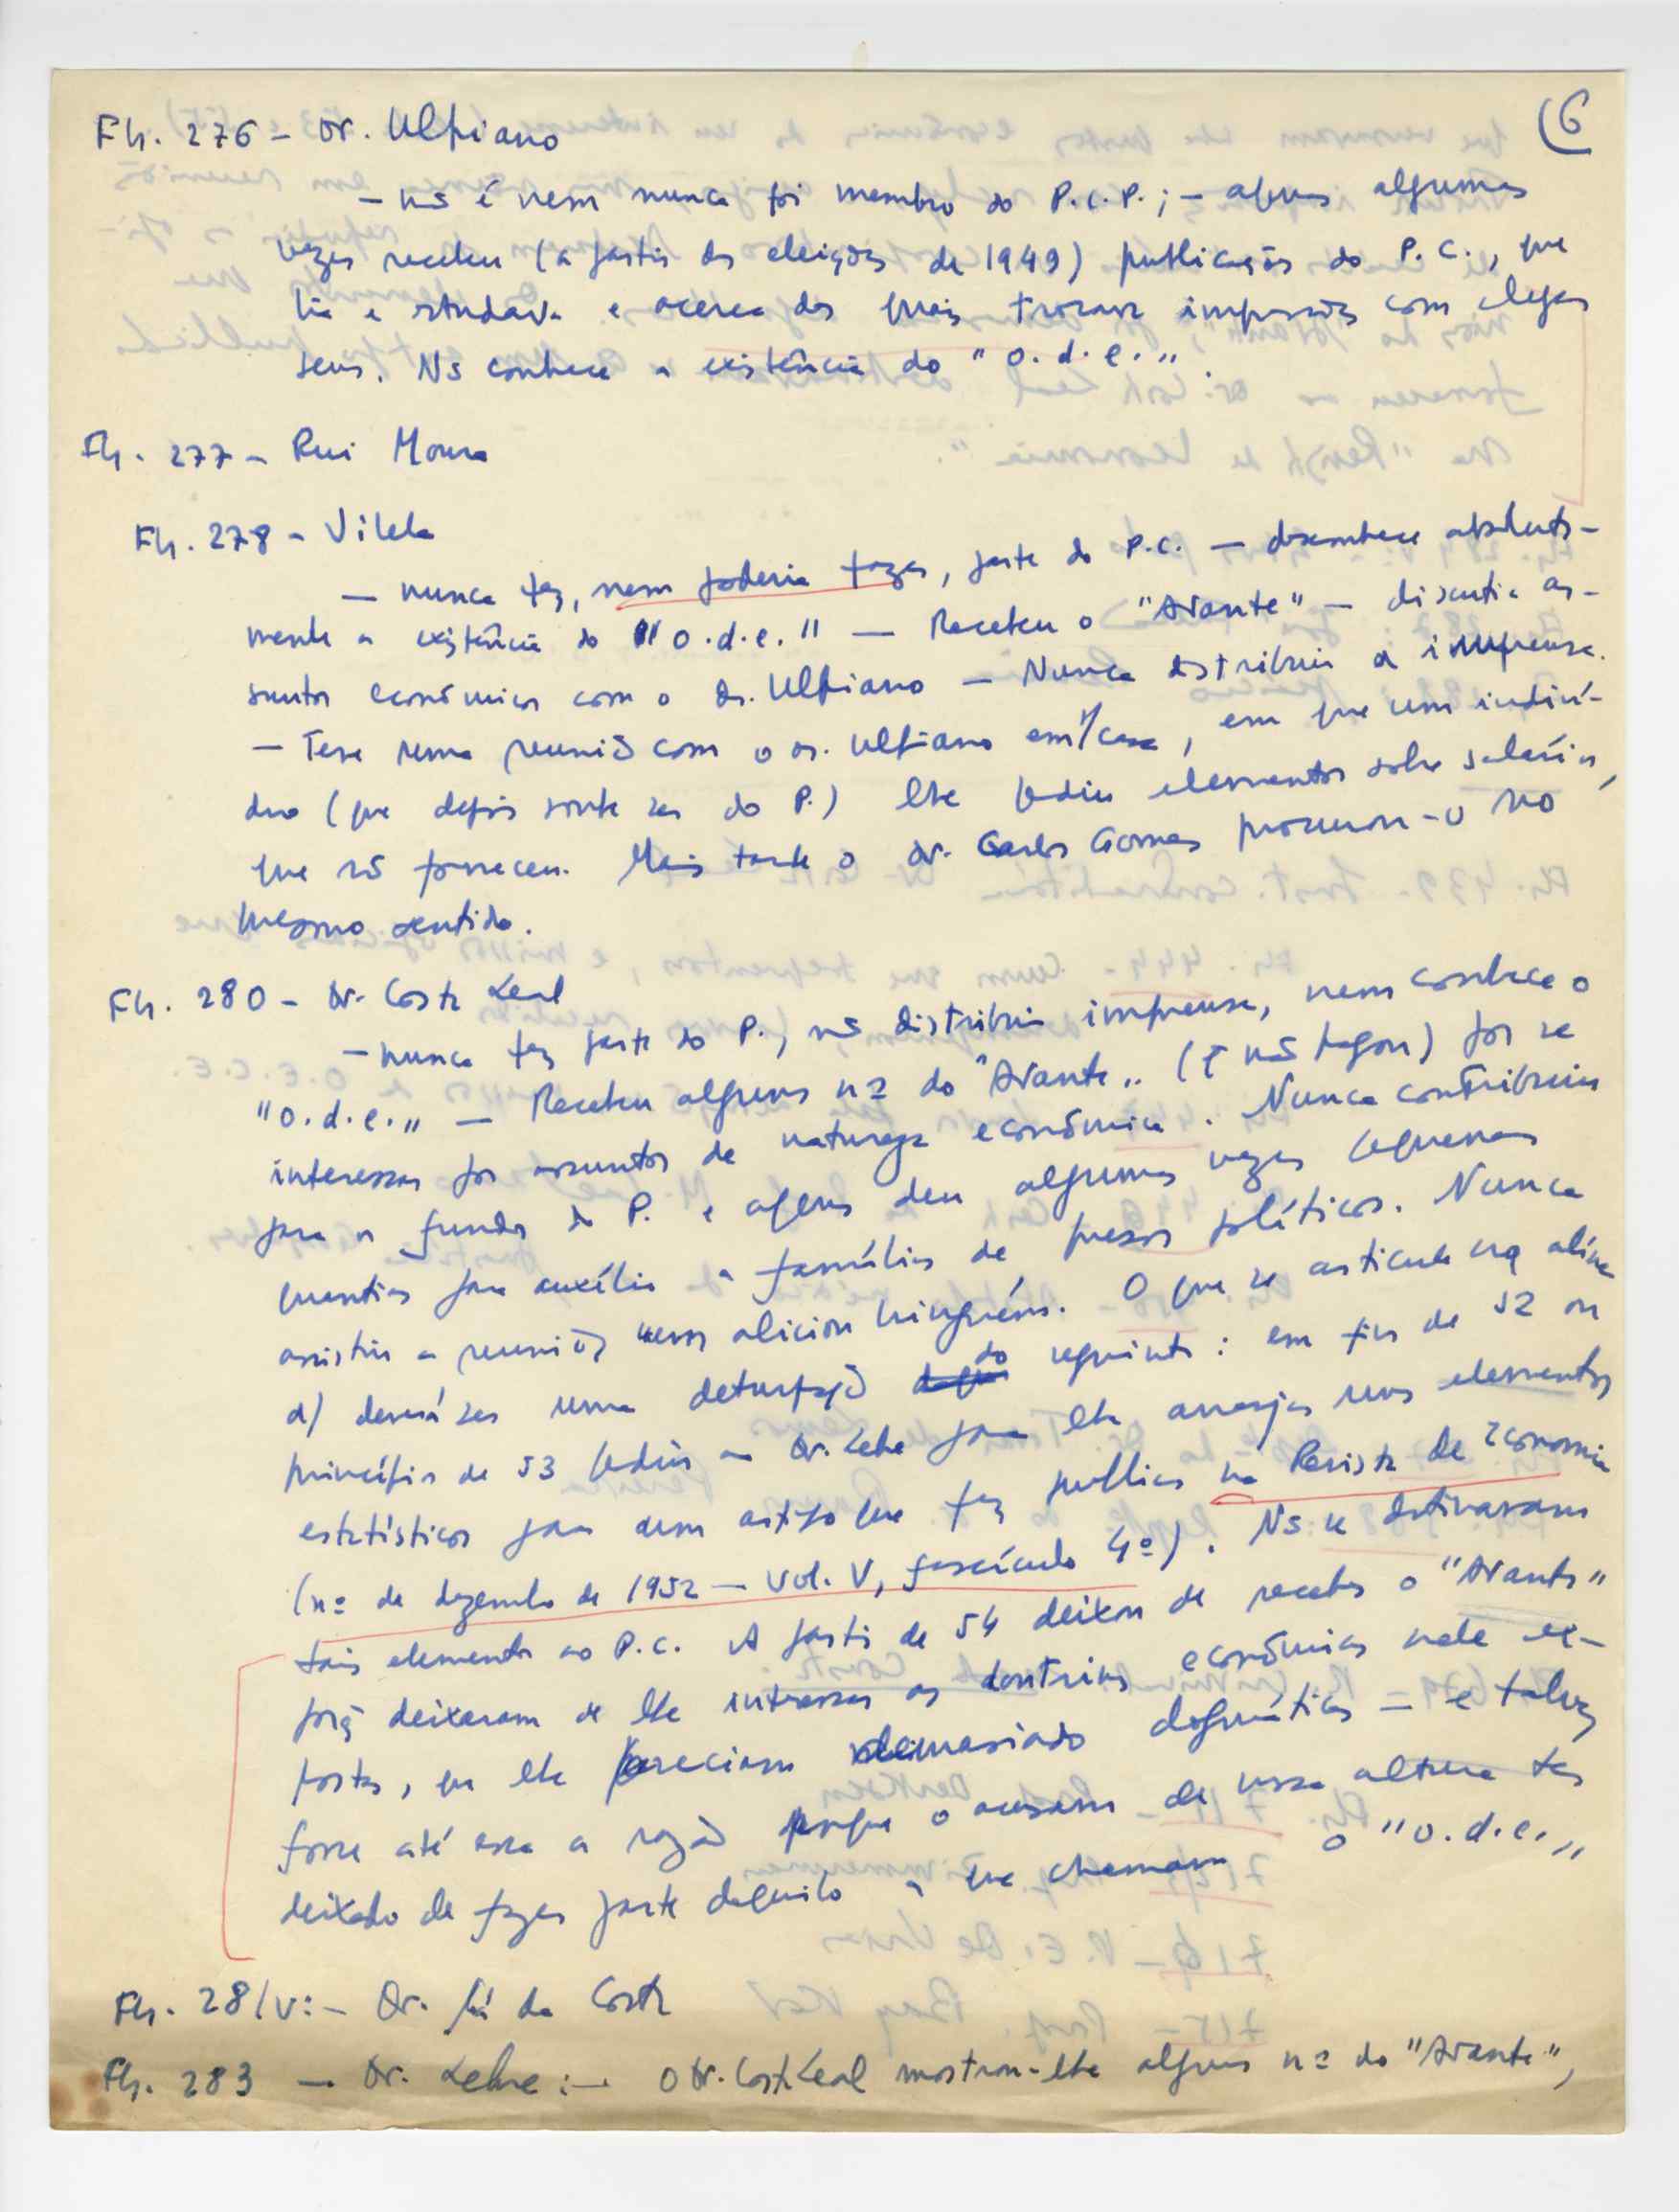 (6
Fls. 276 - Dr. Ulpiano
- não é nem nunca foi membro do P.C.P.; - apenas algumas
vezes recebeu (a partir das eleições de 1949) publicações do P.C., que
lia e estudava e acerca das quais trocava impressões com colegas
seus. Não conhece a existência do "o.d.e.".
Fls. 277 - Rui Moura
Fls. 278 - Vilela
- nunca fez, nem poderia fazer, parte do P.C. - desconhece absoluta-
mente a existência do "o.d.e." - Recebeu o "Avante" - discutia as-
suntos económicos com o dr. Ulpiano - Nunca distribuiu a imprensa.
- Teve uma reunião com o dr. Ulpiano em s/ casa, em que um indiví-
duo (que depois soube ser do P.) lhe pediu elementos sobre salários,
que não forneceu. Mais tarde o dr. Carlos Gomes procurou-o no
mesmo sentido.
Fls. 280 - Dr. Costa Leal
- nunca fez parte do P., não distribuiu imprensa, nem conhece o
"o.d.e." - Recebeu alguns nºs do "Avante" (q não pagou) por se
interessar por assuntos de natureza económica. Nunca contribuiu
para os fundos do P. e apenas deu algumas vezes pequenas
quantias para auxílio a famílias de presos políticos. Nunca
assistiu a reuniões nem aliciou ninguém. O que se articula na alínea
d) deverá ser uma deturpação do seguinte: em fins de 52 ou
princípios de 53 pediu ao Dr. Lebre para lhe arranjar uns elementos
estatísticos para um artigo que fez publicar na Revista de Economia
(nº de dezembro de 1952 - Vol. V, fascículo 4º). Não se destinavam
tais elementos ao P.C. A partir de 54 deixou de receber o "Avante"
porq deixaram de lhe interessar as doutrinas económicas nele ex-
postas, que lhe pareciam demasiado dogmáticas - e talvez
fosse até essa a razão porque o acusam de nessa altura ter
deixado de fazer parte daquilo a que chamam o "o.d.e."
Fls. 281v: - Dr. Sá da Costa
Fls. 283 - Dr. Lebre: - O Dr. Costa Leal mostrou-lhe alguns nºs do "Avante",